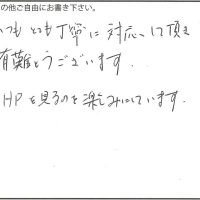 の他ご自由にお書き下さい。
いつも とても丁寧に 対応して頂き
有難とうございます.
HPを見るのを楽しみにしています.